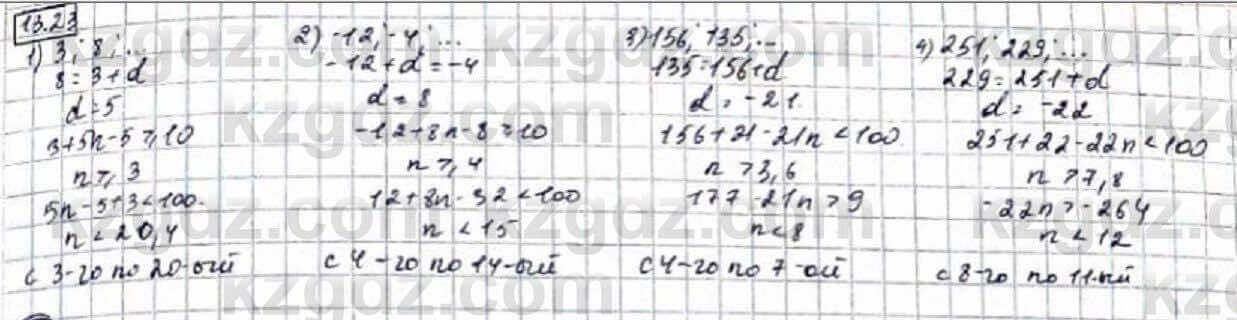 13.23
1) 3; 8; ...
8 = 3 + d
d = 5
3+5n-5 ⩾ 10
n ⩾ 3
5n-5+3<100.
n < 20,4
с 3-го по 20-ый
2) -12; -4; ...
-12 + d = -4
d = 8
-12+8n-8 ⩾ 10
n ⩾ 4
12+8n-32<100
n < 15
с 4-го по 14-ый
3) 156; 135; ...
135=156+d
d = -21.
156+21-21n<100.
n > 3,6
177-21n > 9
n<8
с 4-го по 7-ой
4) 251; 229; ...
229=251+d
d = -22
251+22-22n<100
n > 7,8
-22n > -264
n < 12
с 8-го по 11-ый
kzgdz.com